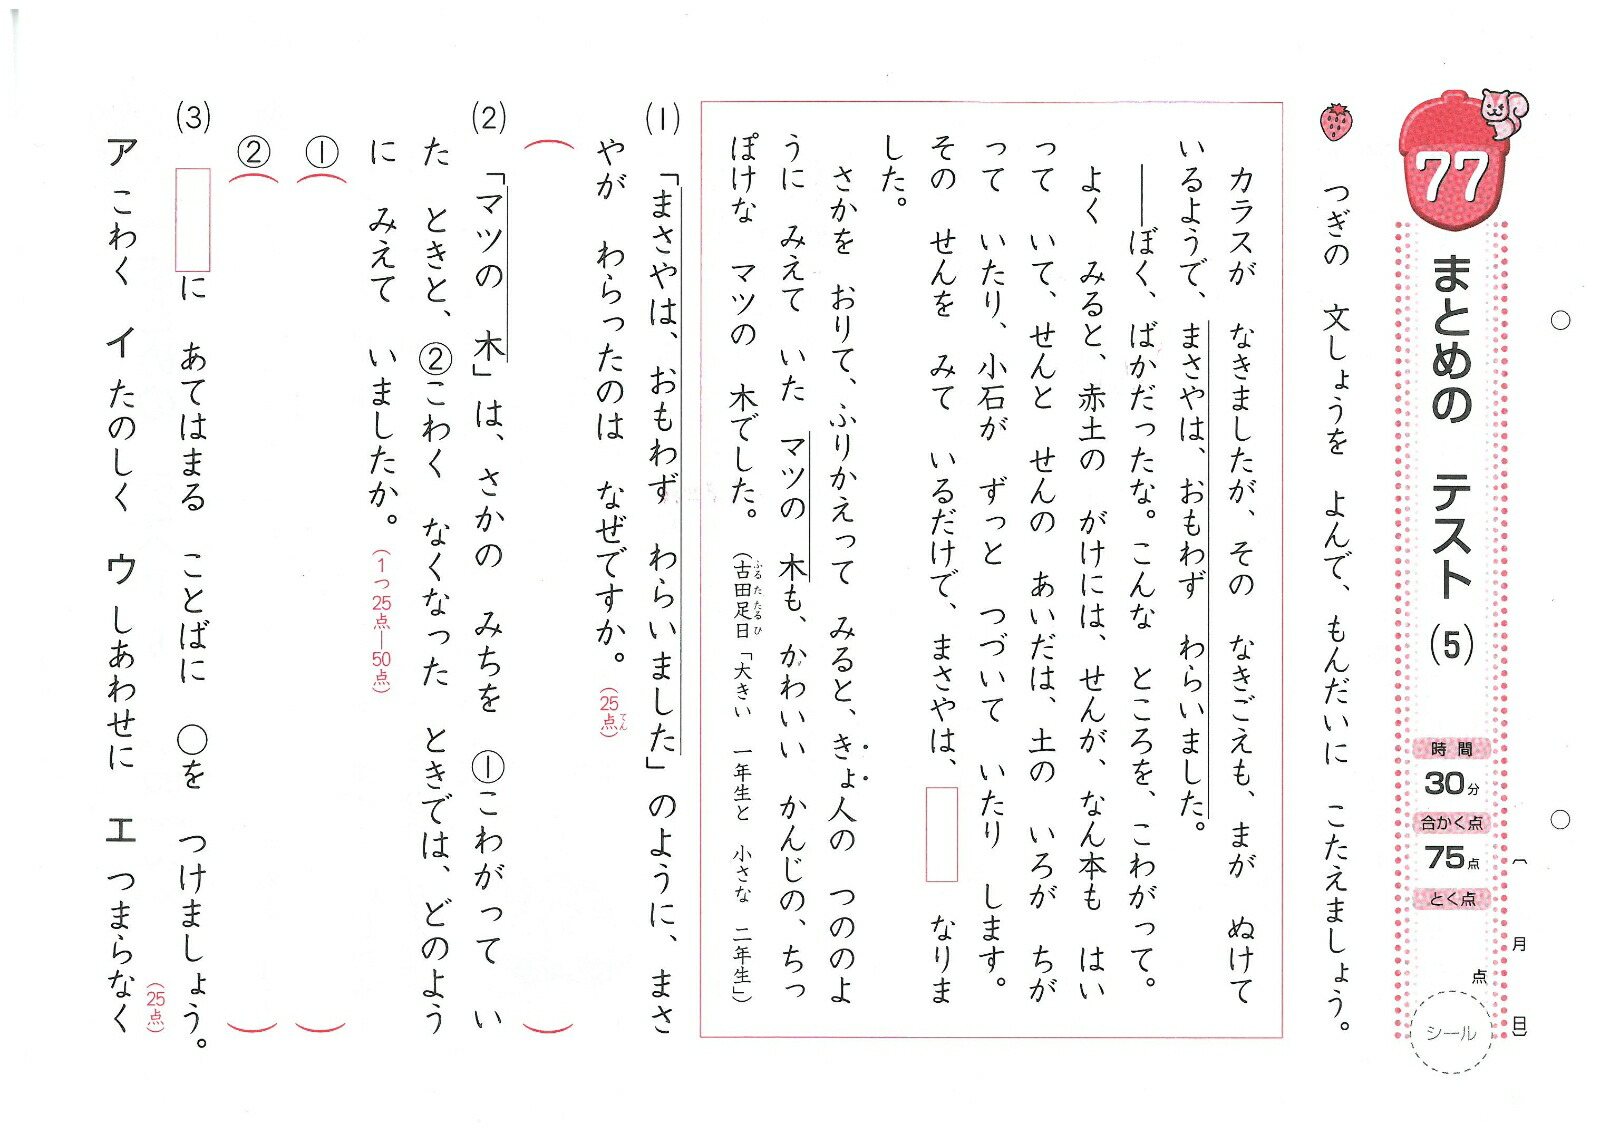 77
まとめの テスト (5)
時間
30分
合かく点
75点
とく点
点
シール
〔 月 日〕
つぎの 文しょうを よんで、もんだいに こたえましょう。
カラスが なきましたが、その なきごえも、まが ぬけて
いるようで、まさやは、おもわず わらいました。
――ぼく、ばかだったな。こんな ところを、こわがって。
よく みると、赤土の がけには、せんが、なん本も はい
って いて、せんと せんの あいだは、土の いろが ちが
って いたり、小石が ずっと つづいて いたり します。
その せんを みて いるだけで、まさやは、 なりま
した。
さかを おりて、ふりかえって みると、きょ人の つののよ
うに みえて いた マツの 木も、かわいい かんじの、ちっ
ぽけな マツの 木でした。
(古田足日「大きい 一年生と 小さな 二年生」)
ふるたたるひ
(1) 「まさやは、おもわず わらいました」のように、まさ
やが わらったのは なぜですか。(25点)
てん
(2) 「マツの 木」は、さかの みちを ①こわがって い
た ときと、②こわく なくなった ときでは、どのよう
に みえて いましたか。(1つ25点―50点)
①
②
(3) に あてはまる ことばに ○を つけましょう。
(25点)
ア こわく イ たのしく ウ しあわせに エ つまらなく